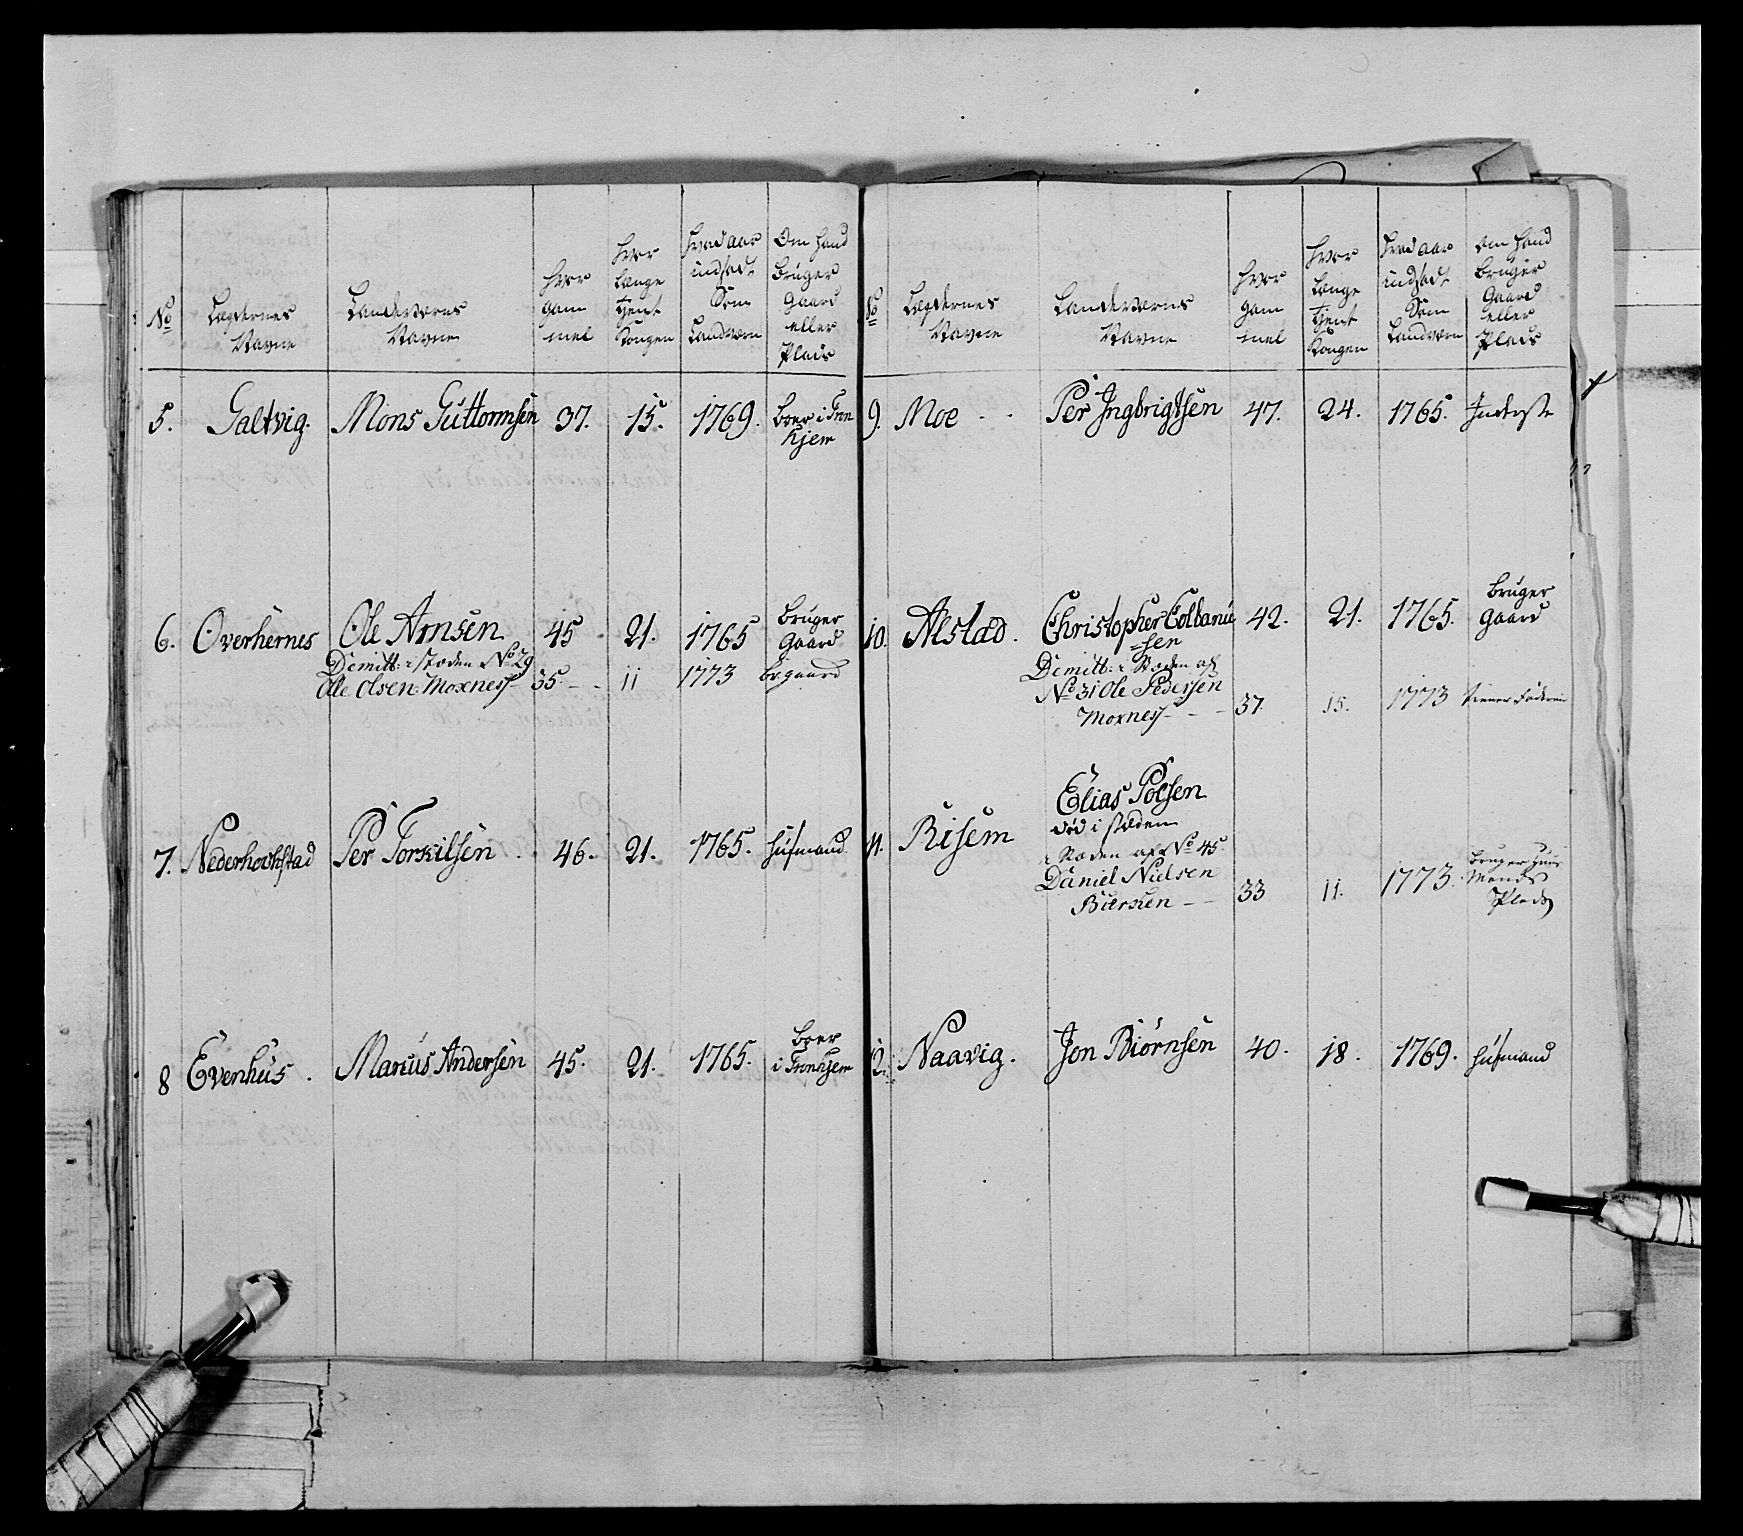 No
Lægdernes Navne
Landeværns Navne
hvor gam mel
hvor længe tjent Kongen
hvad aar indsadt Som Landværn
Om hand bruger Gaard eller Plads
5. Galtvig. Mons Guttormsen 37. 15. 1769. boer i Tron
hjem
6. Overhernes Ole Arnsen 45 21. 1765 bruger
Gaard
Dimitt: i stæden No 29
Ole Olsen Moxness 35 11 1773 br: gaard
7. Nederhochstad Per Torkilsen 46. 21. 1765. huusmand
8 Evenhus. Marcus Andersen 45. 21. 1765. boer
i Tronhjem
No
Lægdernes Navne
Landeværns Navne
hvor gam mel
hvor længe tjent Kongen
hvad aar indsadt Som Landværn
om hand bruger Gaard eller Plads
9. Moe Per Ingbrigtsen 47. 24. 1765. Inderste
10. Alstad. Christopher Colbanu 42. 21. 1765. bruger
=sen Gaard
Dimitt: i Stæden af
No 31 Ole Pedersen
Moxness 37. 15. 1773 tiener
11. Risem Elias Polsen
død i stæden
i Stæden af No 45
Daniel Nielsen 33 11. 1773. bruger Huus
Biersken Mands
Plads
12. Naavig. Jon Biørnsen 40. 18. 1769. huusmand